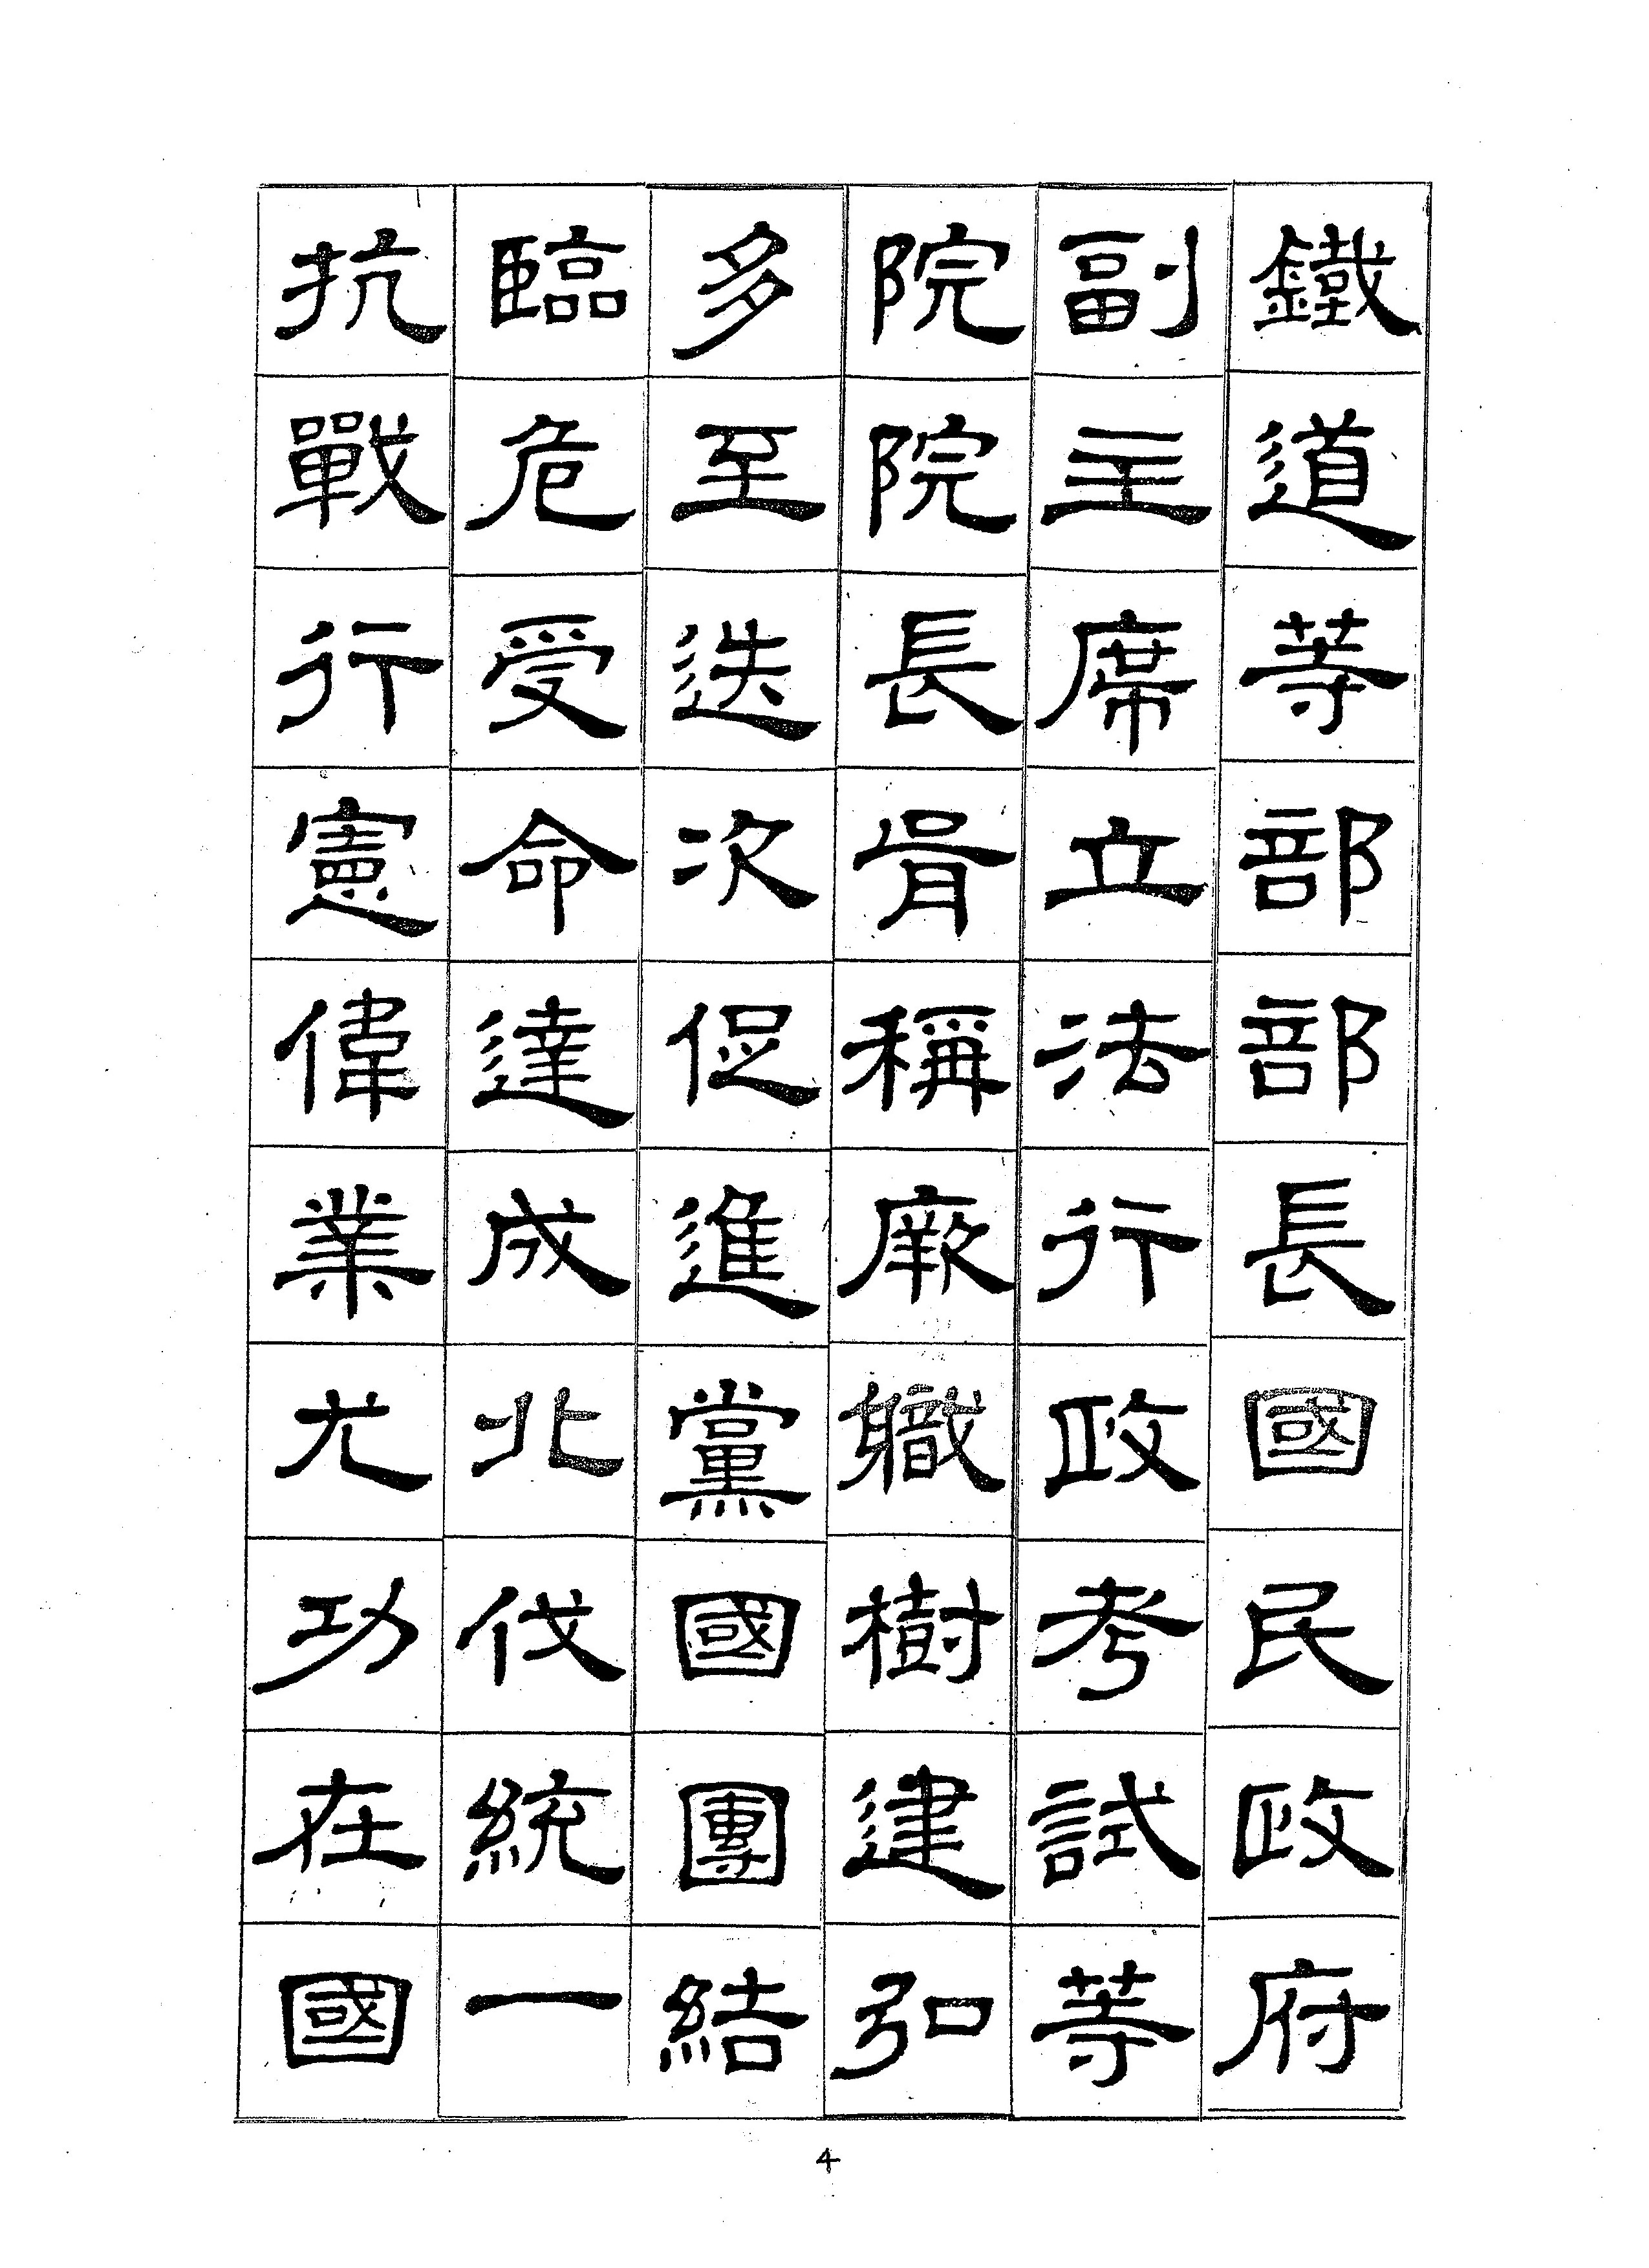 鐵道等部部長國民政府
副主席立法行政考試等
院院長肯稱厥職樹建弘
多至迭次促進黨國團結
臨危受命達成北伐統一
抗戰行憲偉業尤功在國
4